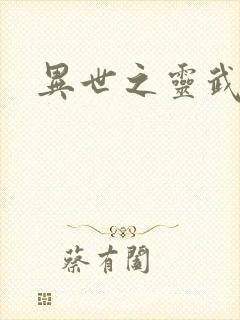 異世之靈武
蔡有闔